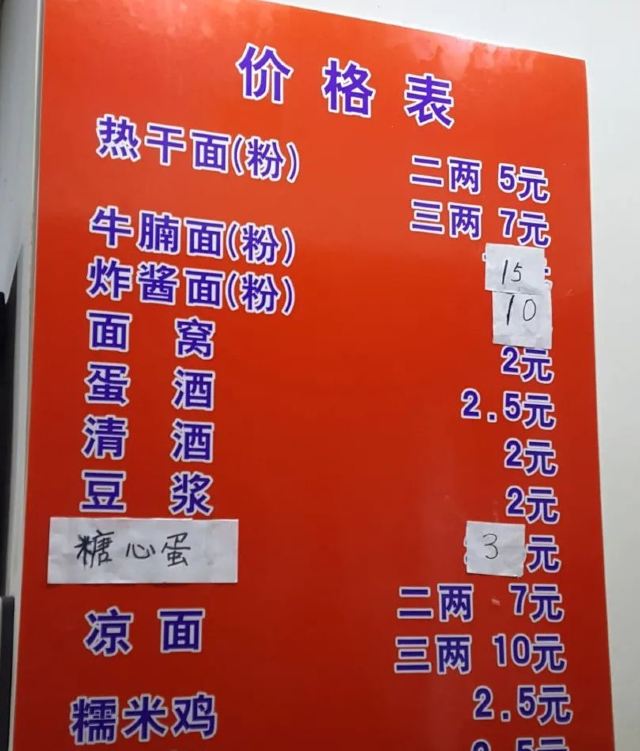 价格表
热干面(粉) 二两 5元
三两 7元
牛腩面(粉) 15
炸酱面(粉) 10
面 窝 2元
蛋 酒 2.5元
清 酒 2元
豆 浆 2元
糖心蛋 3元
凉面 二两 7元
三两 10元
糯米鸡 2.5元